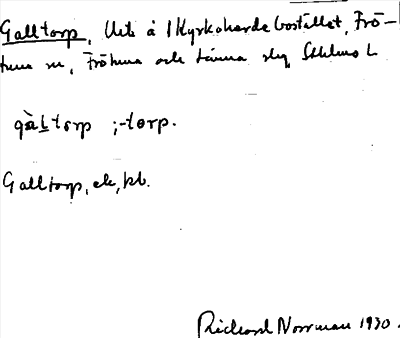 Galltorp, Uts å 1 Kyrkoherdebostället, Frö-
tuna sn, Frötuna och Länna skg Sthlms L
gàLtɷrp ; -tɷrp.
Galltorp, ek, kb.
Richard Norrman 1930.